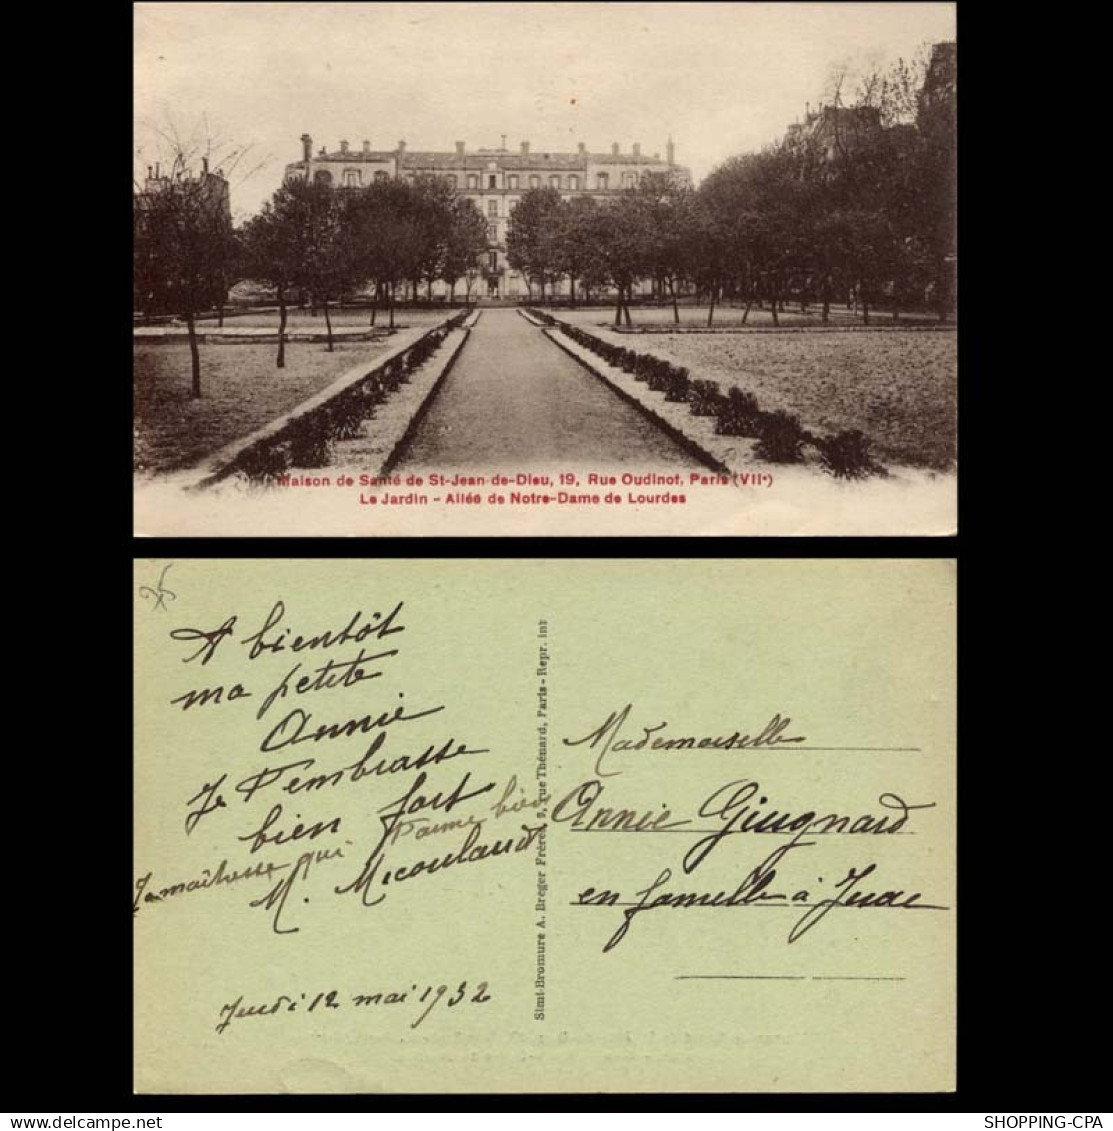 Maison de Santé de St-Jean-de-Dieu, 19, Rue Oudinot, Paris (VIIe)
Le Jardin - Allée de Notre-Dame de Lourdes
25
A bientôt
ma petite
Annie
Je t'embrasse
bien fort
Ta maîtresse qui t'aime bien
M. Micouland
Jeudi 12 mai 1932
Simi-Bromure A. Breger Frères, 9, rue Thénard, Paris - Repr. int
Mademoiselle
Annie Giugnard
en famille à
SHOPPING-CPA